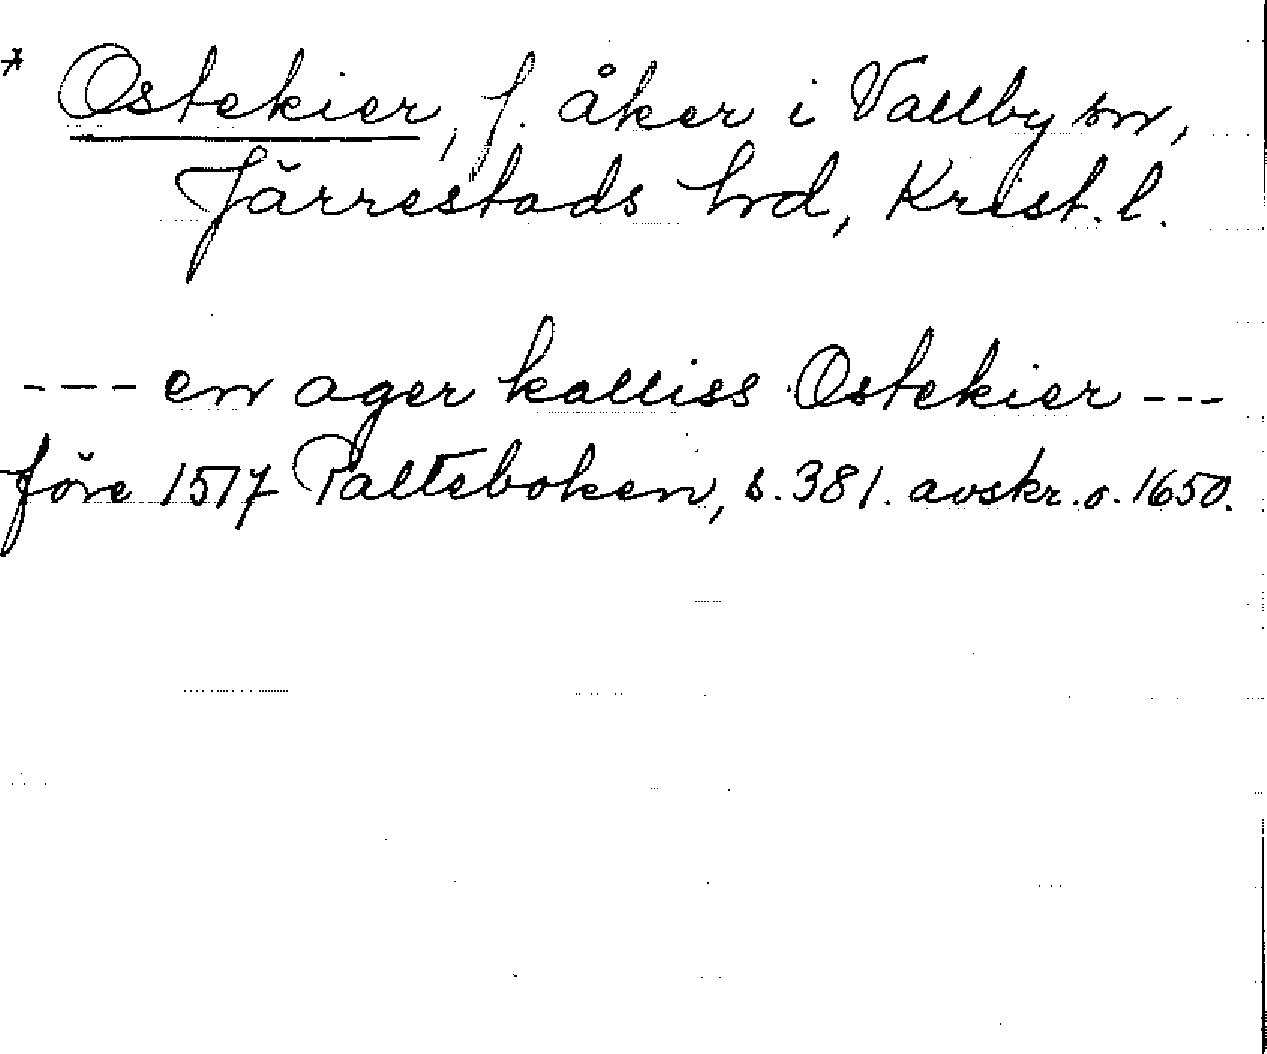 * Ostekier, f. åker i Vallby sn,
Järrestads hd, Krist. l.
--- en ager kalliss Ostekier ---
före 1517 Palteboken, s. 381. avskr. o. 1650.